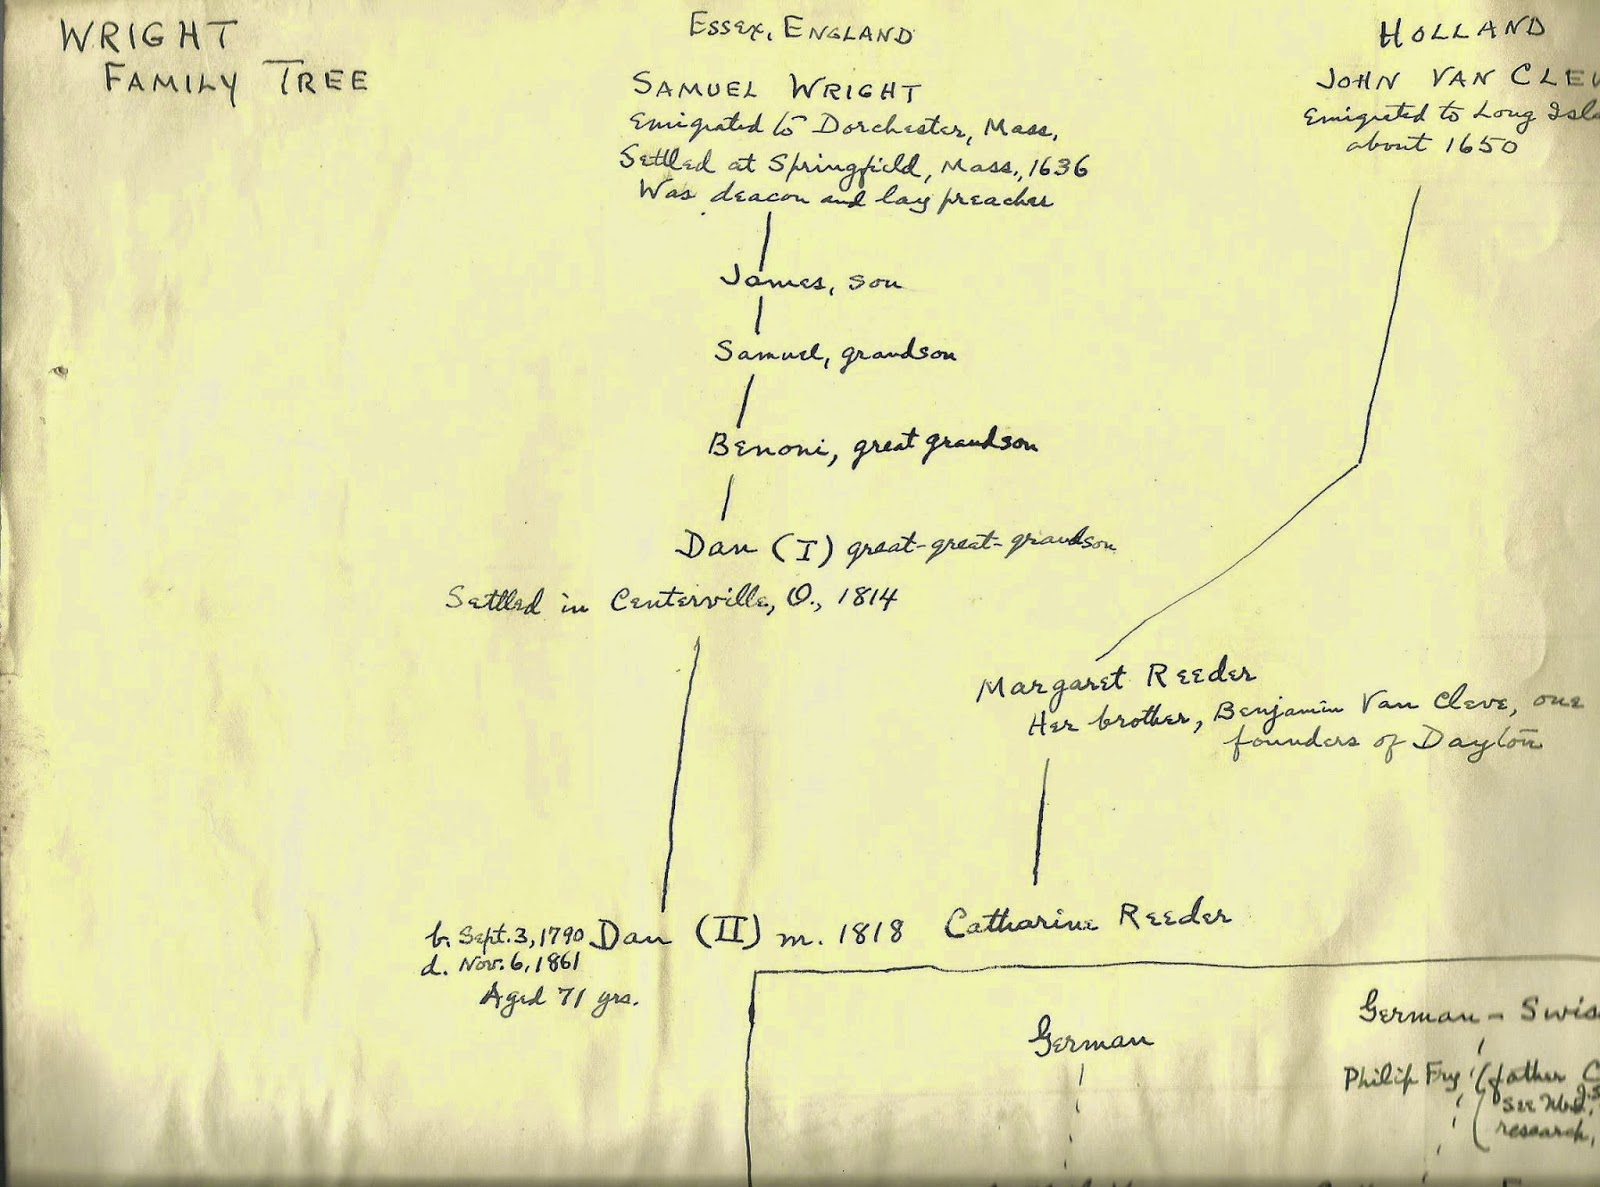 WRIGHT
FAMILY TREE
ESSEX, ENGLAND
SAMUEL WRIGHT
Emigrated to Dorchester, Mass.
Settled at Springfield, Mass., 1636
Was deacon and lay preacher
James, son
Samuel, grandson
Benoni, great grandson
Dan (I) great-great-grandson
Settled in Centerville, O., 1814
HOLLAND
JOHN VAN CLEV
Emigrated to Long Isla
about 1650
Margaret Reeder
Her brother, Benjamin Van Cleve, one
founders of Dayton
b. Sept. 3, 1790 Dan (II) m. 1818 Catharine Reeder
d. Nov. 6, 1861
Aged 71 yrs.
German
German - Swis
Philip Fry (father C
See
research,